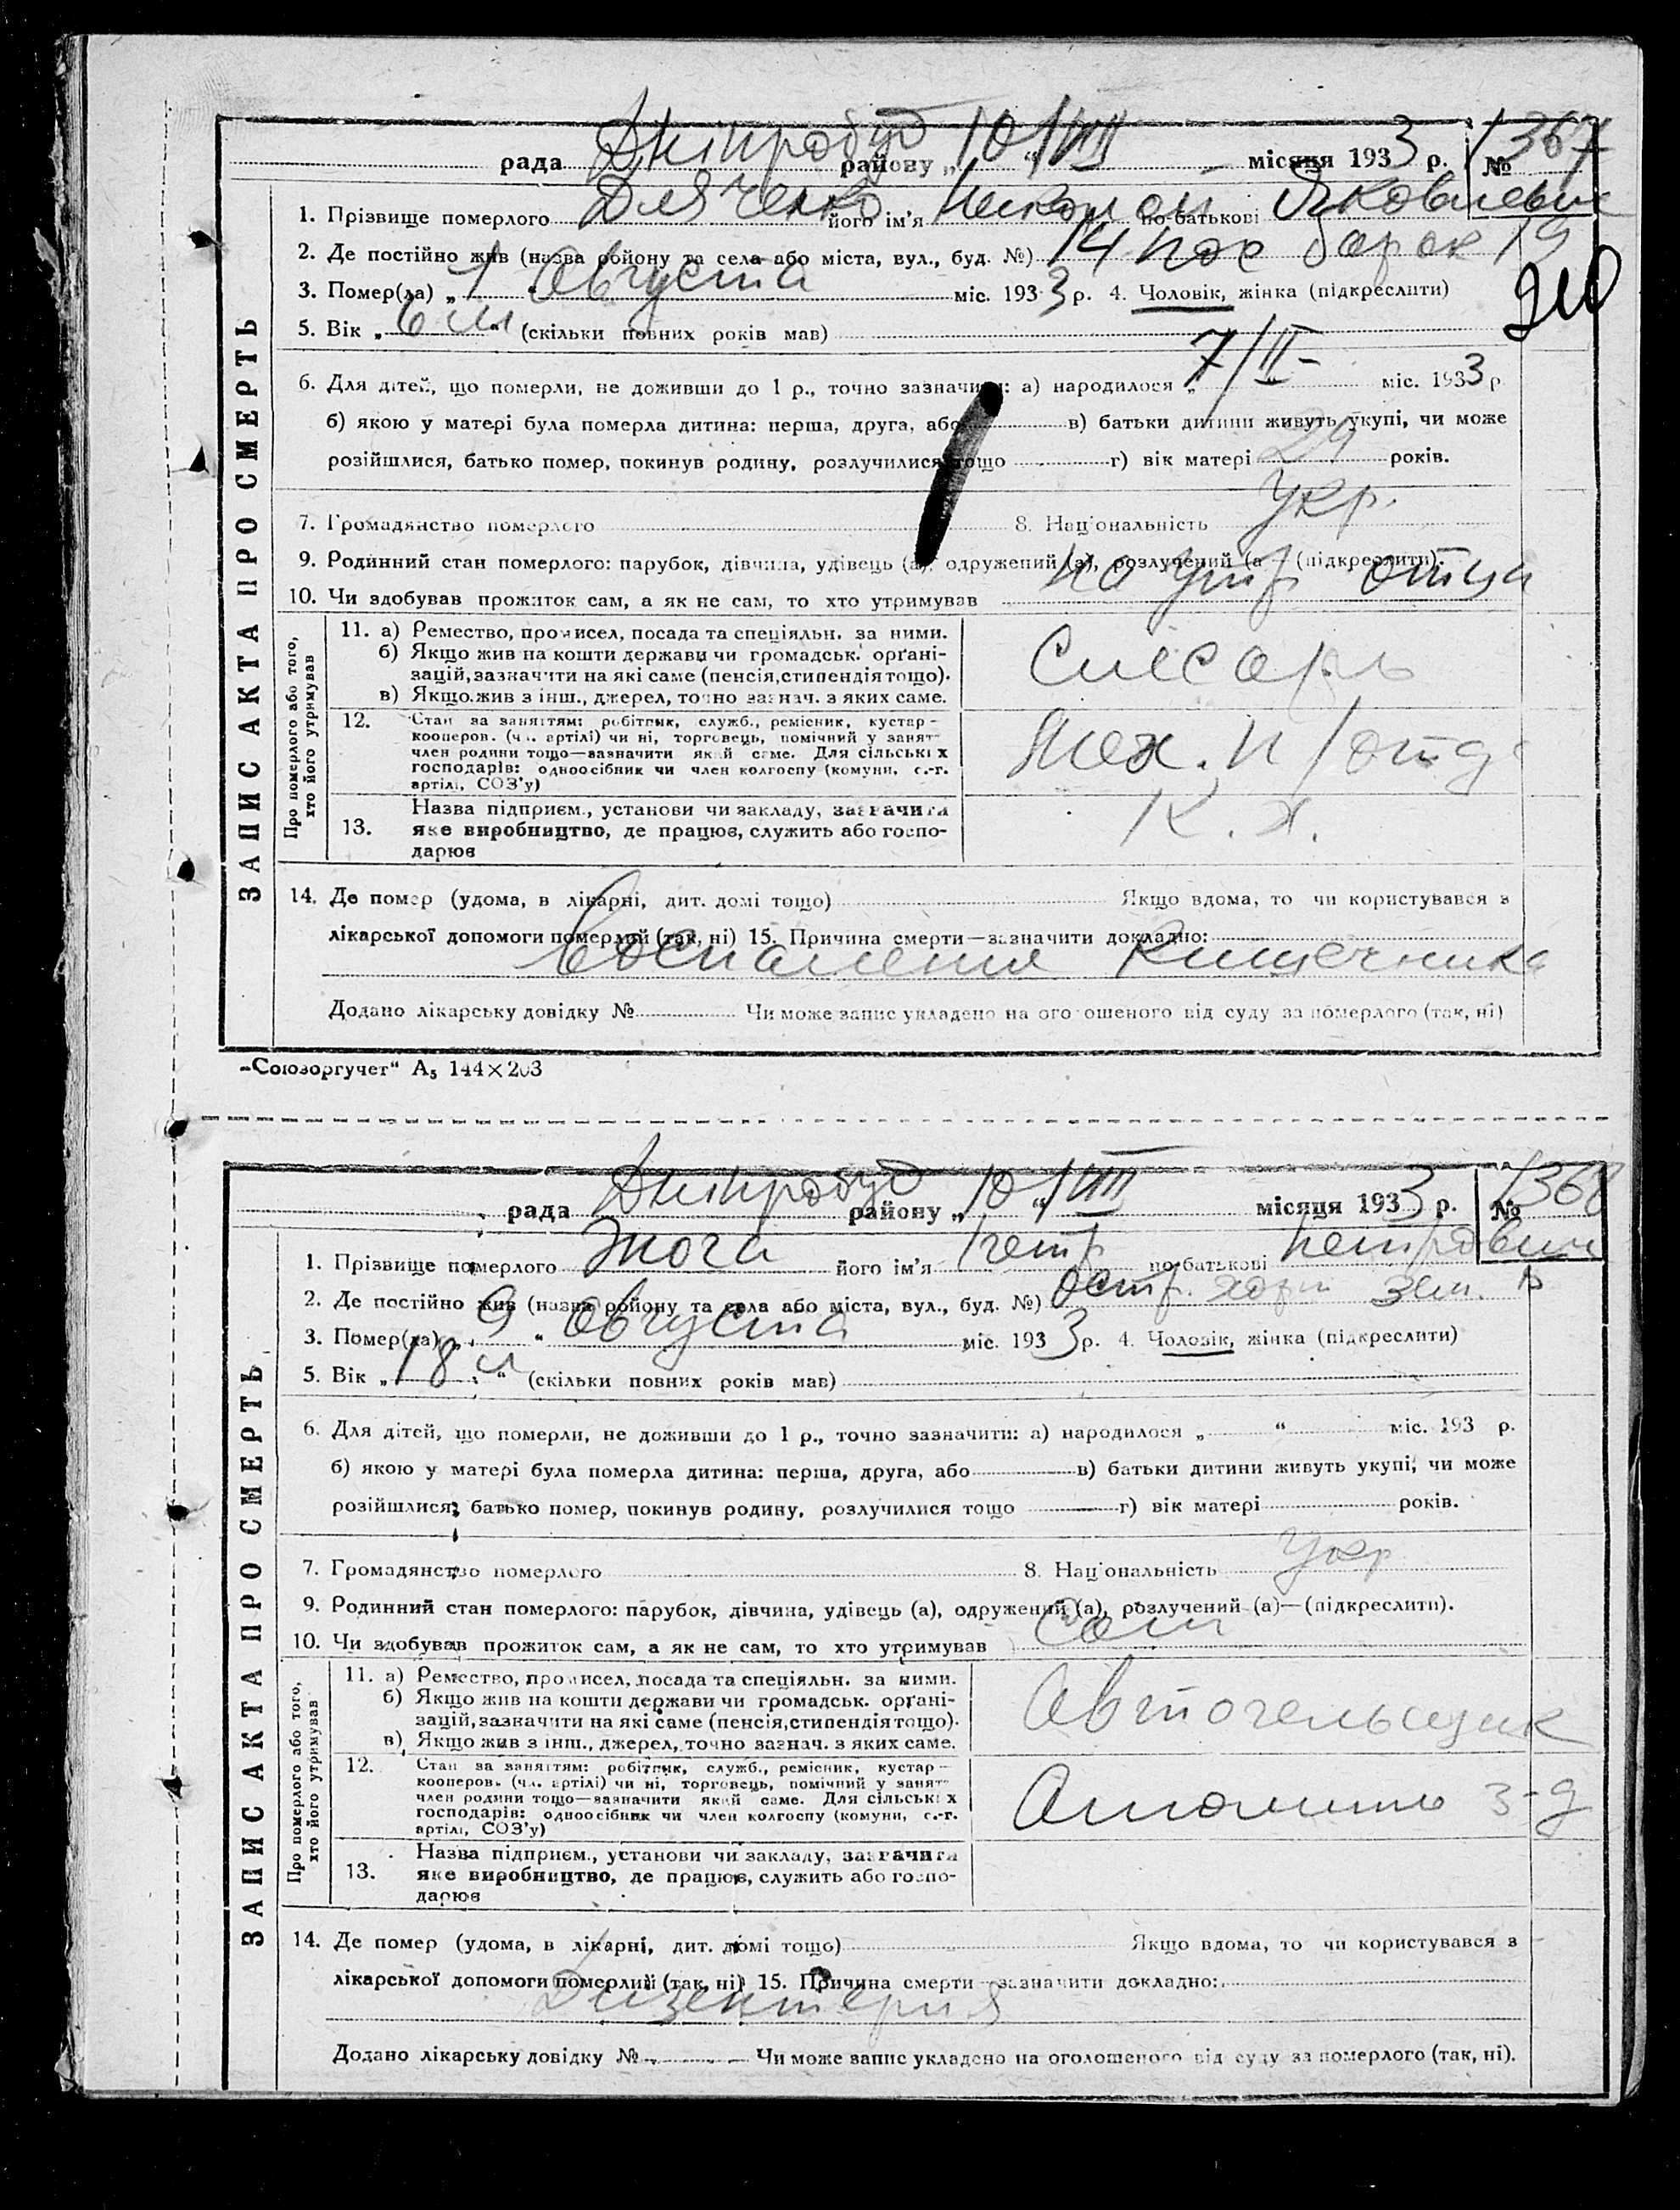 рада Дніпробуд району „ 10 “ VIII місяця 1933 р. № 1367
1. Прізвище померлого Дляченко його ім'я по-батькові Яковлевич
2. Де постійно жив (назва району та села або міста, вул., буд. №) 14 пос барак 19
3. Помер(ла) „ 1 “ Августа міс. 1933 р. 4. Чоловік, жінка (підкреслити)
5. Вік „ 6 м “ (скільки повних років мав)
6. Для дітей, що померли, не доживши до 1 р., точно зазначити: а) народилося „ 7/II- міс. 1933 р
б) якою у матері була померла дитина: перша, друга, або в) батьки дитини живуть укупі, чи може
розійшлися, батько помер, покинув родину, розлучилися тощо г) вік матері 29 років.
7. Громадянство померлого 8. Національність укр.
9. Родинний стан померлого: парубок, дівчина, удівець (а), одружений (а), розлучений (а — (підкреслити).
10. Чи здобував прожиток сам, а як не сам, то хто утримував на ижд отца
Про померлого або того, хто його утримував
11. а) Ремество, промисел, посада та спеціяльн. за ними.
б) Якщо жив на кошти держави чи громадськ. орґані-
зацій, зазначити на які саме (пенсія, стипендія тощо).
в) Якщо жив з інш., джерел, точно зазнач. з яких саме.
Слесарь
12. Стан за заняттям: робітник, служб., ремісник, кустар—
кооперов. (чл. артілі) чи ні, торговець, помічний у занят—
член родини тощо—зазначити який саме. Для сільських
господарів: одноосібник чи член колгоспу (комуни, с.-г.
артілі, СОЗ'у)
13. Назва підприєм., установи чи закладу, зазначити
яке виробництво, де працює, служить або госпо-
дарює
К. Х.
14. Де помер (удома, в лікарні, дит. домі тощо) Якщо вдома, то чи користувався з
лікарської допомоги померлий (так, ні) 15. Причина смерти—зазначити докладно:
Воспаление кишечника
Додано лікарську довідку № Чи може запис укладено на оголошеного від суду за померлого (так, ні)
ЗАПИС АКТА ПРО СМЕРТЬ
„Союзоргучет“ А5 144×203
рада Дніпробуд району „ 10 “ VIII місяця 1933 р. № 1368
1. Прізвище померлого його ім'я Петр по-батькові Петрович
2. Де постійно жив (назва району та села або міста, вул., буд. №) зем.
3. Помер(ла) „ 9 “ Августа міс. 1933 р. 4. Чоловік, жінка (підкреслити)
5. Вік „ 18 л “ (скільки повних років мав)
6. Для дітей, що померли, не доживши до 1 р., точно зазначити: а) народилося „ “ міс. 193 р.
б) якою у матері була померла дитина: перша, друга, або в) батьки дитини живуть укупі, чи може
розійшлися, батько помер, покинув родину, розлучилися тощо г) вік матері років.
7. Громадянство померлого 8. Національність укр
9. Родинний стан померлого: парубок, дівчина, удівець (а), одружений (а), розлучений (а)—(підкреслити).
10. Чи здобував прожиток сам, а як не сам, то хто утримував Сам
Про померлого або того, хто його утримував
11. а) Ремество, промисел, посада та спеціяльн. за ними.
б) Якщо жив на кошти держави чи громадськ. орґані-
зацій, зазначити на які саме (пенсія, стипендія тощо).
в) Якщо жив з інш., джерел, точно зазнач. з яких саме.
Автогельщик
12. Стан за заняттям: робітник, служб., ремісник, кустар—
кооперов. (чл. артілі) чи ні, торговець, помічний у занят—
член родини тощо—зазначити який саме. Для сільських
господарів: одноосібник чи член колгоспу (комуни, с.-г.
артілі, СОЗ'у)
з-д
13. Назва підприєм., установи чи закладу, зазначити
яке виробництво, де працює, служить або госпо-
дарює
14. Де помер (удома, в лікарні, дит. домі тощо) Якщо вдома, то чи користувався з
лікарської допомоги померлий (так, ні) 15. Причина смерти—зазначити докладно:
Дизентерия
Додано лікарську довідку № Чи може запис укладено на оголошеного від суду за померлого (так, ні).
ЗАПИС АКТА ПРО СМЕРТЬ